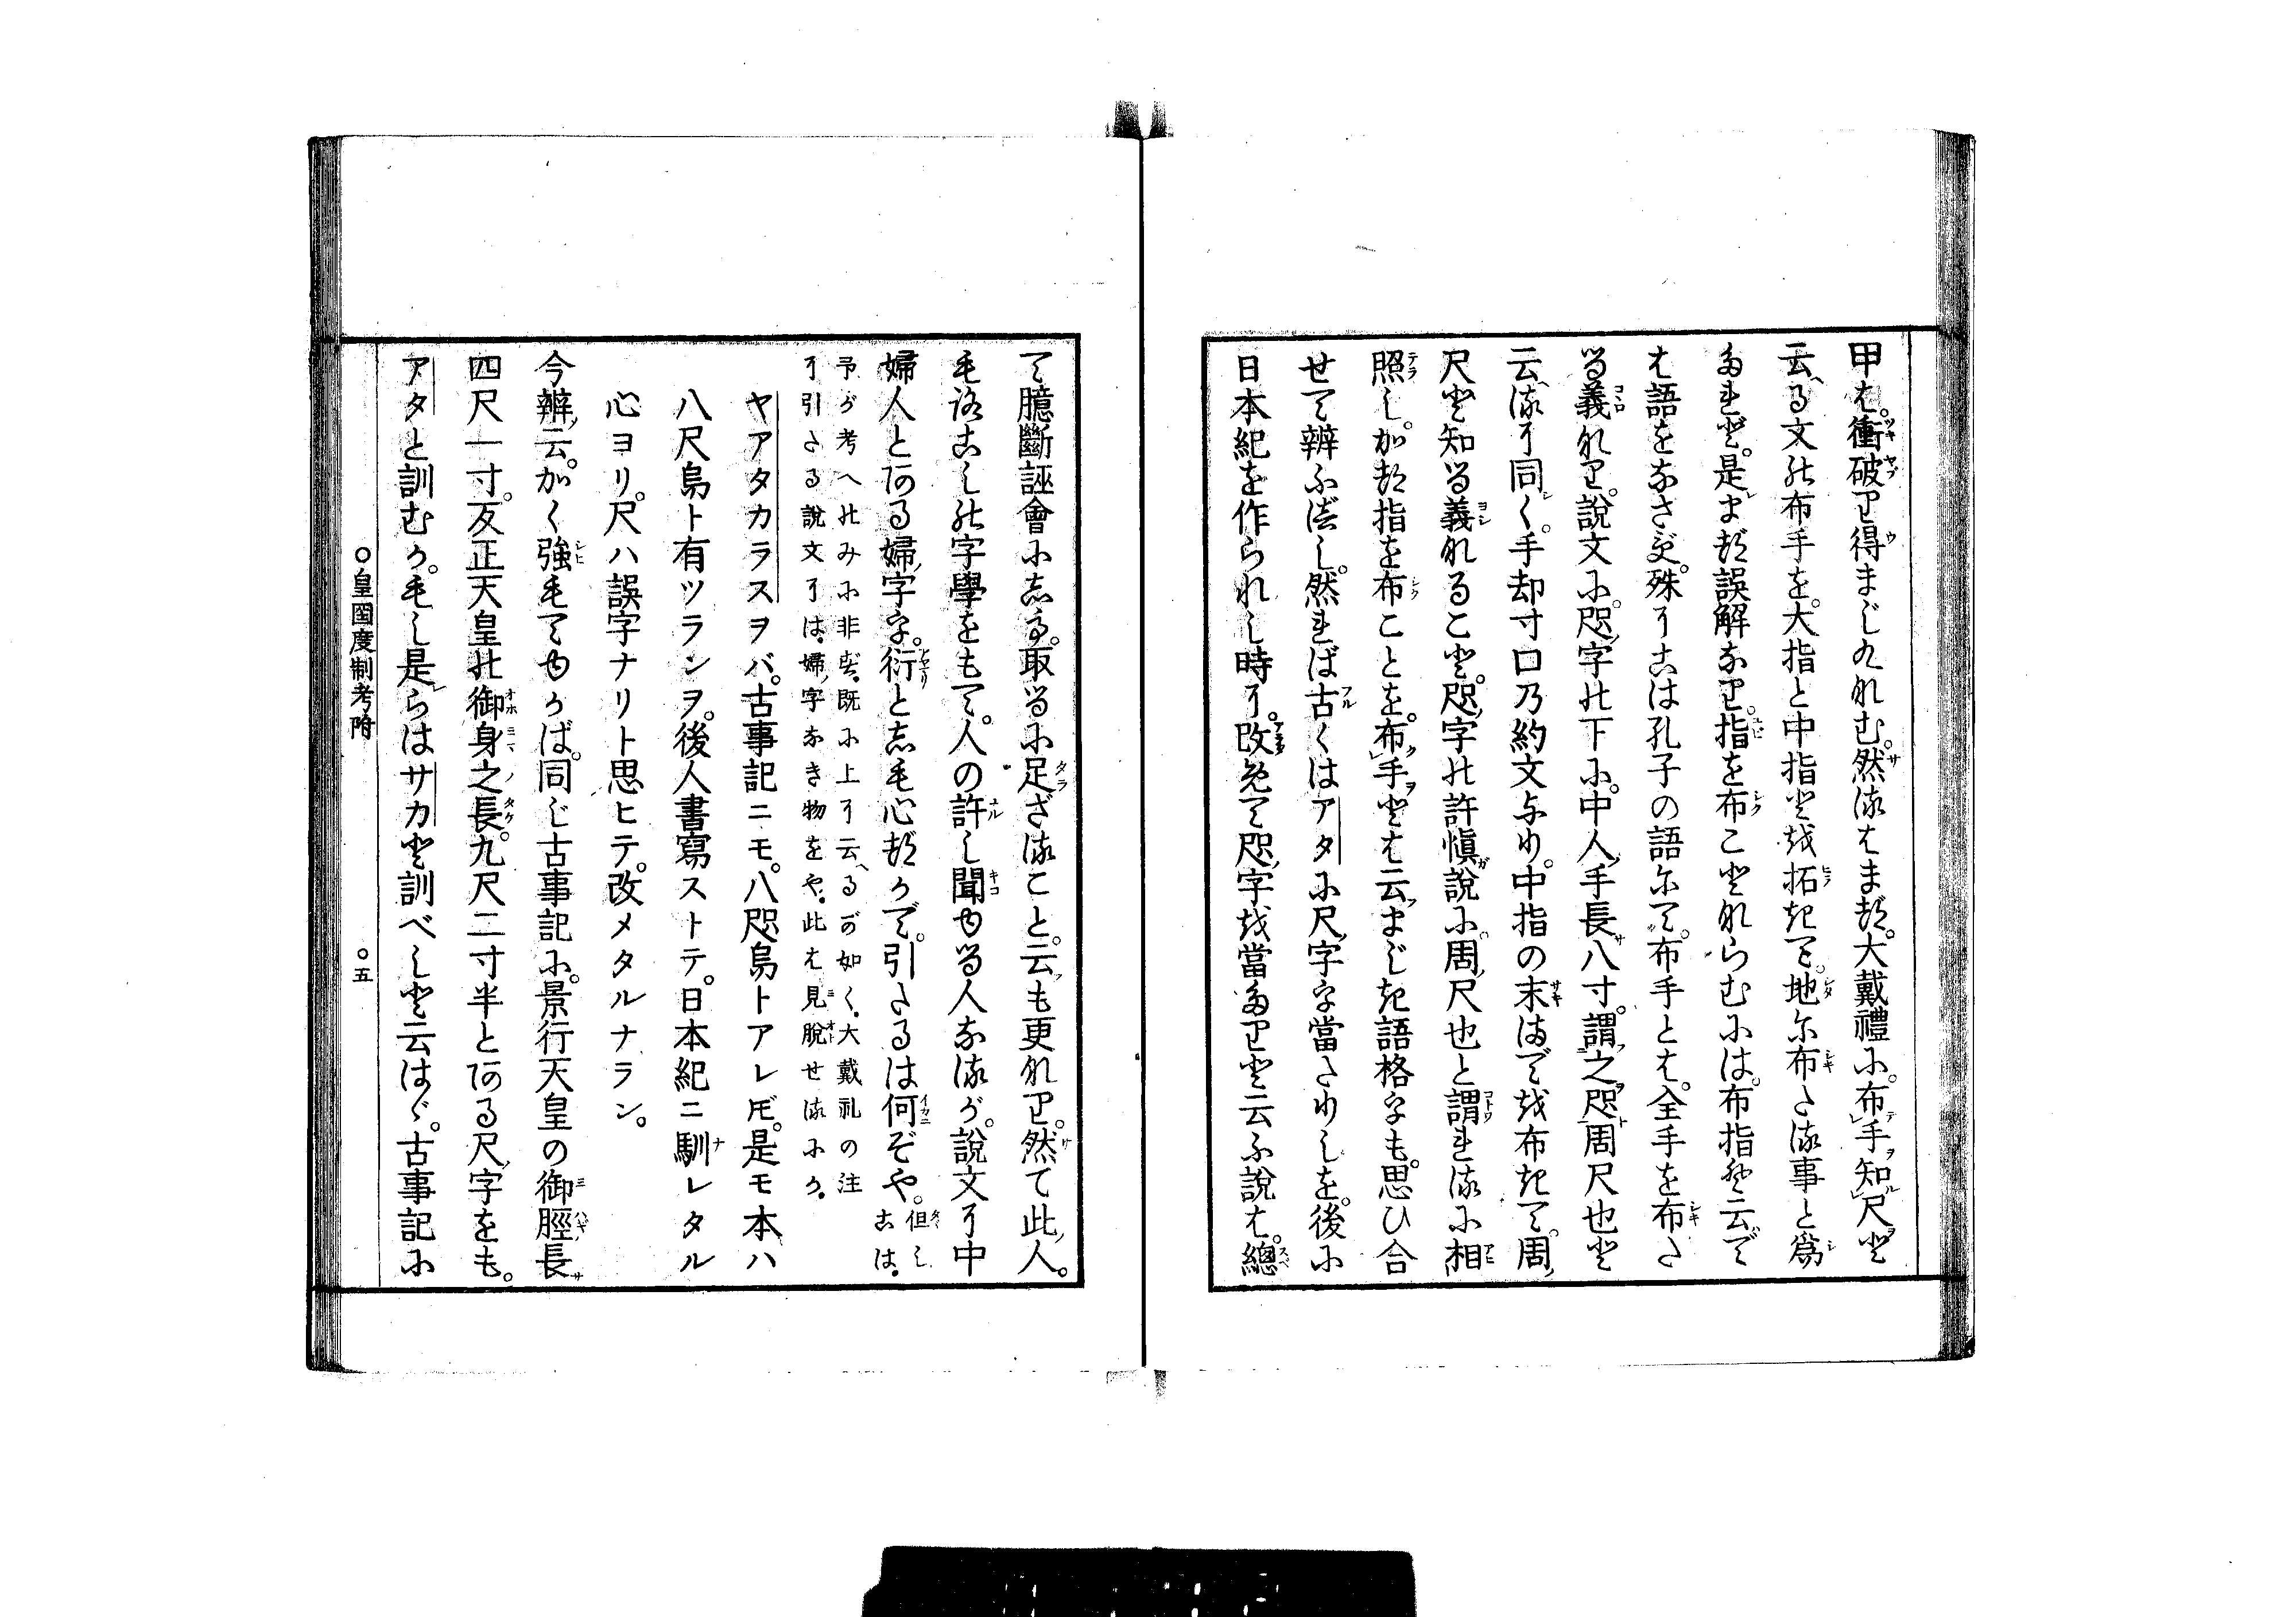 甲は。衝破り得まじくなむ。然るはまづ。大戴禮に。布手知尺と
云る文の布手を。大指と中指とを拓きて。地に布たる事と為
たれど。是まづ誤解なり。指を布ことならむには。布指と云で
は語をなさず。殊にこは孔子の語にて。布手とは。全手を布た
る義なり。說文に。咫字の下に。中人手長八寸。謂之咫周尺也と
云るに同く。手却寸口乃約文より。中指の末までを布きて。周
尺と知る義なること。咫字の許愼說に。周尺也と謂れるに相
照し。かつ指を布ことを。布手とは云まじき語格字も。思ひ合
せて辨ふべし。然れば古くはアタに尺字字當たりしを。後に
日本紀を作られし時に。改めて咫字を當たりと云ふ說は。總
て臆斷誣會にして。取るに足ざること。云も更なり。然て此人。
もろこしの字學をもて。人の許し聞ゆる人なるが。說文に中
婦人とある婦字字。衍としも心づかで。引たるは何ぞや。但しこは。
予が考への みに非ず。既に上に云るが如く。大戴礼の注
に引たる說文には。婦字なき物をや。此は見脫せるにか。
ヤアタカラスヲバ。古事記ニモ。八咫烏トアレド。是モ本ハ
八尺烏ト有ツランヲ。後人書寫ストテ。日本紀ニ馴レタル
心ヨリ。尺ハ誤字ナリト思ヒテ。改メタルナラン。
今辨云。かく強もてゆかば。同じ古事記に。景行天皇の御脛長
四尺一寸。反正天皇の御身之長。九尺二寸半とある尺字をも。
アタと訓むか。もし是らはサカと訓べしと云はゞ。古事記に
○皇國度制考附
○五